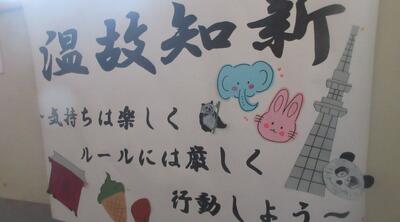 温故知新
～気持ちは楽しく
ルールには厳しく
行動しよう～